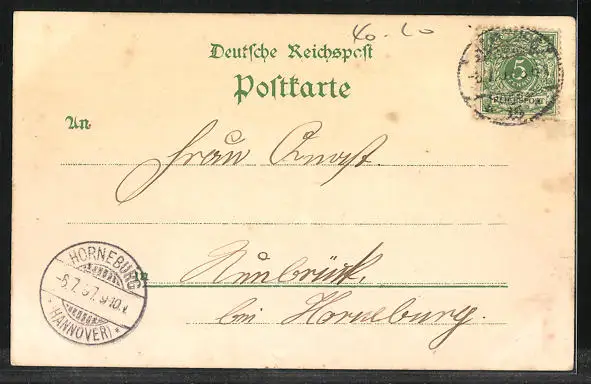 40.-20
Deutsche Reichspost
Postkarte
5
REICHSPOST
An
Frau Quast.
Neubrück,
bei Horneburg.
HORNEBURG
-6.7.97.9-10.V
* (HANNOVER) *